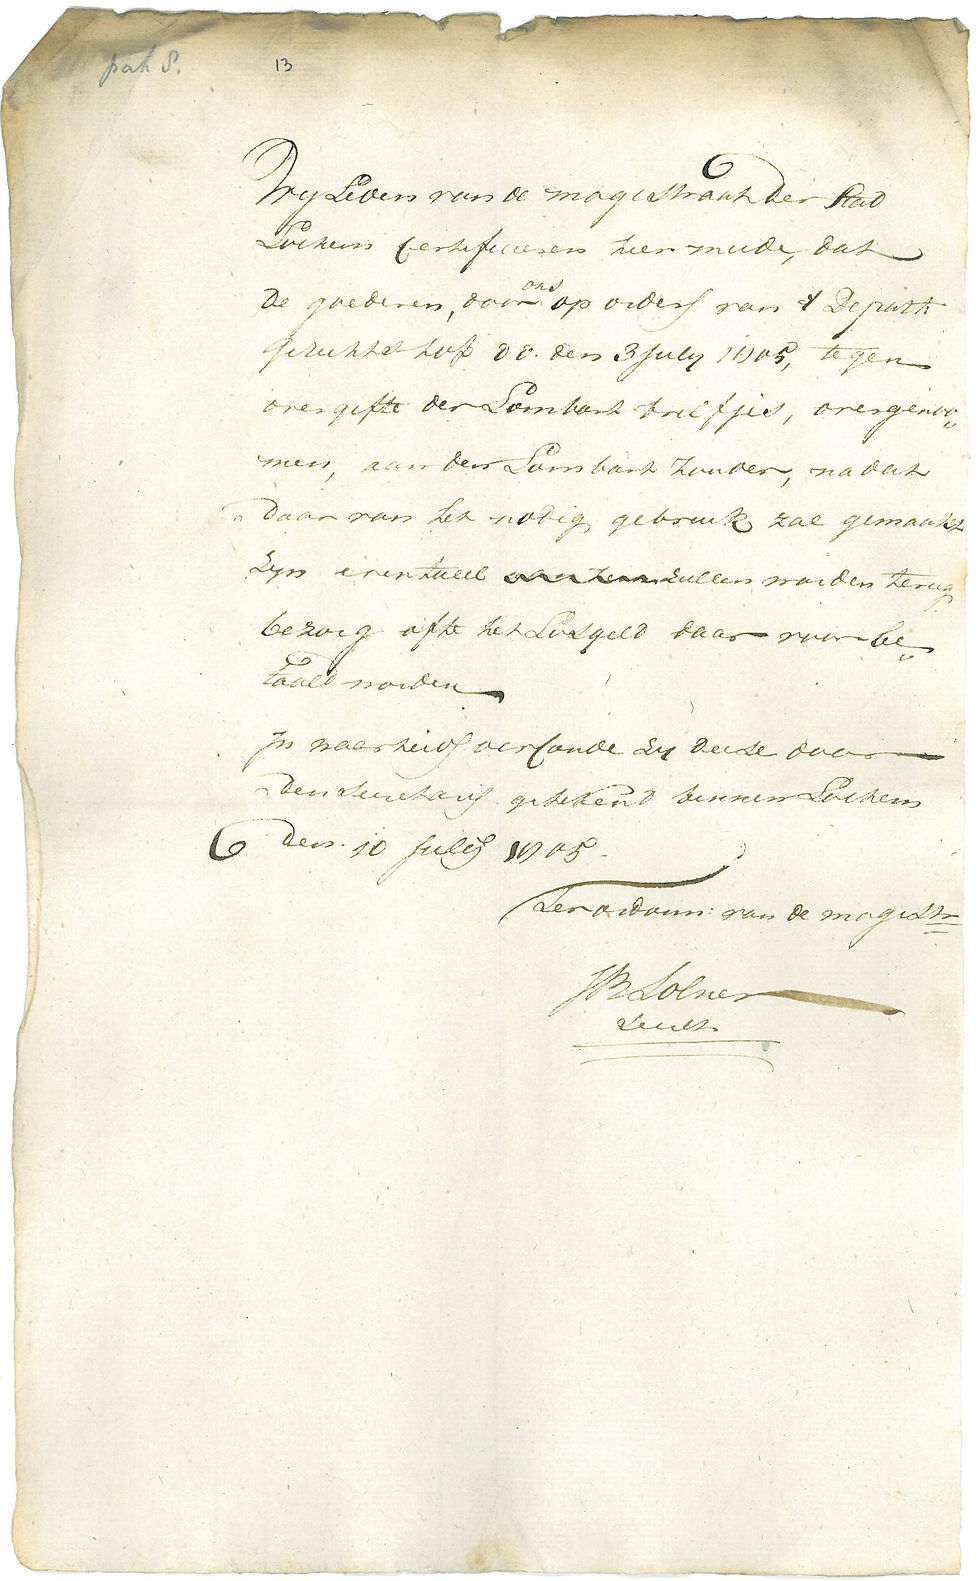 pak 8. 13
Wy Leden van de magistraat der Stad
Lochem certificeeren hier mede, dat
de goederen, door ons op orders van 't Departt:
gerichts hof dd. den 3 July 1805, tegen
overgifte der Lombart briefjes, overgenoo„
men, aan den Lombart houder, na dat
daar van het nodig gebruik zal gemaakt
zyn eventueel zullen worden terug
bezorg ofte het Losgeld daar voor be„
taald worden
In waarheids oirconde zy deeze door
den Secretaris getekend binnen Lochem
den 10 July 1805.
Ter ordonn: van de magistr
Secrets